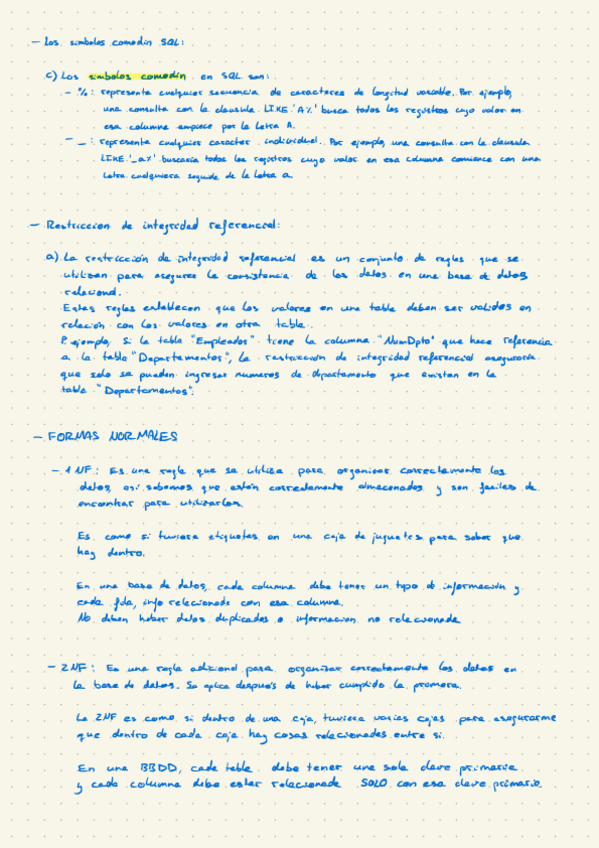 - Los simbolos comodin SQL:
c) Los simbolos comodin en SQL son:
- %: representa cualquier secuencia de caracteres de longitud variable. Por ejemplo,
una consulta con la clausula LIKE 'A%' busca todos los registros cuyo valor en
esa columna empiece por la letra A.
- _ : representa cualquier caracter individual. Por ejemplo, una consulta con la clausula
LIKE '_a%' buscaria todos los registros cuyo valor en esa columna comience con una
letra cualquiera seguida de la letra a.
- Restriccion de integridad referencial:
a) La restricción de integridad referencial es un conjunto de reglas que se
utilizan para asegurar la consistencia de los datos en una base de datos
relacional.
Estas reglas establecen que los valores en una tabla deben ser validos en
relación con los valores en otra tabla.
P. ejemplo, Si la tabla "Empleados" tiene la columna "NumDpto" que hace referencia
a la tabla "Departamentos", la restricción de integridad referencial aseguraria
que solo se pueden ingresar numeros de departamento que existan en la
tabla "Departamentos".
- FORMAS NORMALES
- 1NF: Es una regla que se utiliza para organizar correctamente los
datos, asi sabemos que estén correctamente almacenados y son faciles de
encontrar para utilizarlos.
Es como si tuviera etiquetas en una caja de juguetes para saber que
hay dentro.
En una base de datos, cada columna debe tener un tipo de información y
cada fila, info relacionada con esa columna.
No deben haber datos duplicados o informacion no relacionada
- 2NF: Es una regla adicional para organizar correctamente los datos en
la base de datos. Se aplica después de haber cumplido la primera.
La 2NF es como si dentro de una caja, tuviera varias cajas para asegurarme
que dentro de cada caja hay cosas relacionadas entre si.
En una BBDD, cada tabla debe tener una sola clave primaria
y cada columna debe estar relacionada SOLO con esa clave primaria.